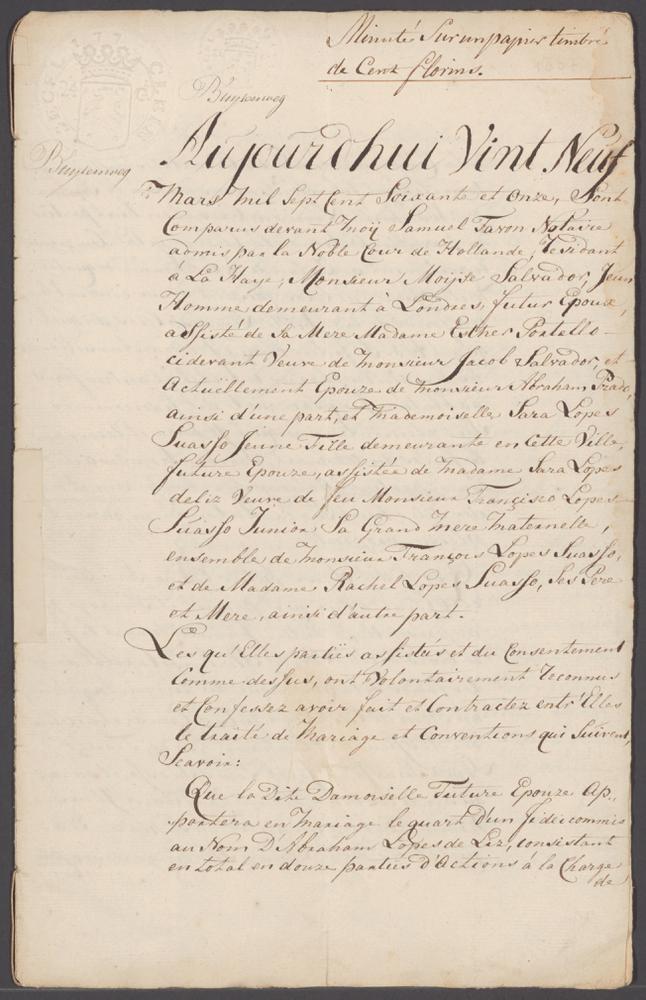 Minuté Sur un papier timbré
de Cent florins.
Buytenweg
Buytenweg
Aujourdhui Vint Neuf
Mars mil Sept Cent Soixante et Onze, Sont
Comparus devant moÿ Samuel Favon Notaire
admis par la Noble Cour de Hollande, residant
à La Haye, Monsieur Moijse Salvador, Jeun
Homme demeurant à Londres, futur Epoux,
assisté de Sa Mere Madame Esther Portello
cidevant Veuve de monsieur Jacob Salvador, et
actuellement Epouze de monsieur Abraham Prado,
ainsi d'une part, et mademoiselle Sara Lopes
Suasso Jeune Fille demeurante en Cette Ville,
future Epouze, assistée de madame Sara Lopes
deliz Veuve de feu Monsieur Francisco Lopes
Suasso Junior Sa Grand mere maternelle,
ensemble de monsieur François Lopes Suasso,
et de Madame Rachel Lopes Suasso, Ses Pere
et Mere, ainsi d'autre part.
Les qu'Elles partiës assistés et du Consentement
Comme dessus, ont Volontairement reconnus
et Confessez avoir fait et Contractez entr'Elles
le traité de Mariage et Conventions qui Suivent,
Scavoir:
Que la Dite Damoiselle Future Epouze Ap„
portera en Mariage le quart d'un fideicommis
au Nom D'Abraham Lopes de Liz, consistant
en total en douze parties d'Actions à la Charge
de